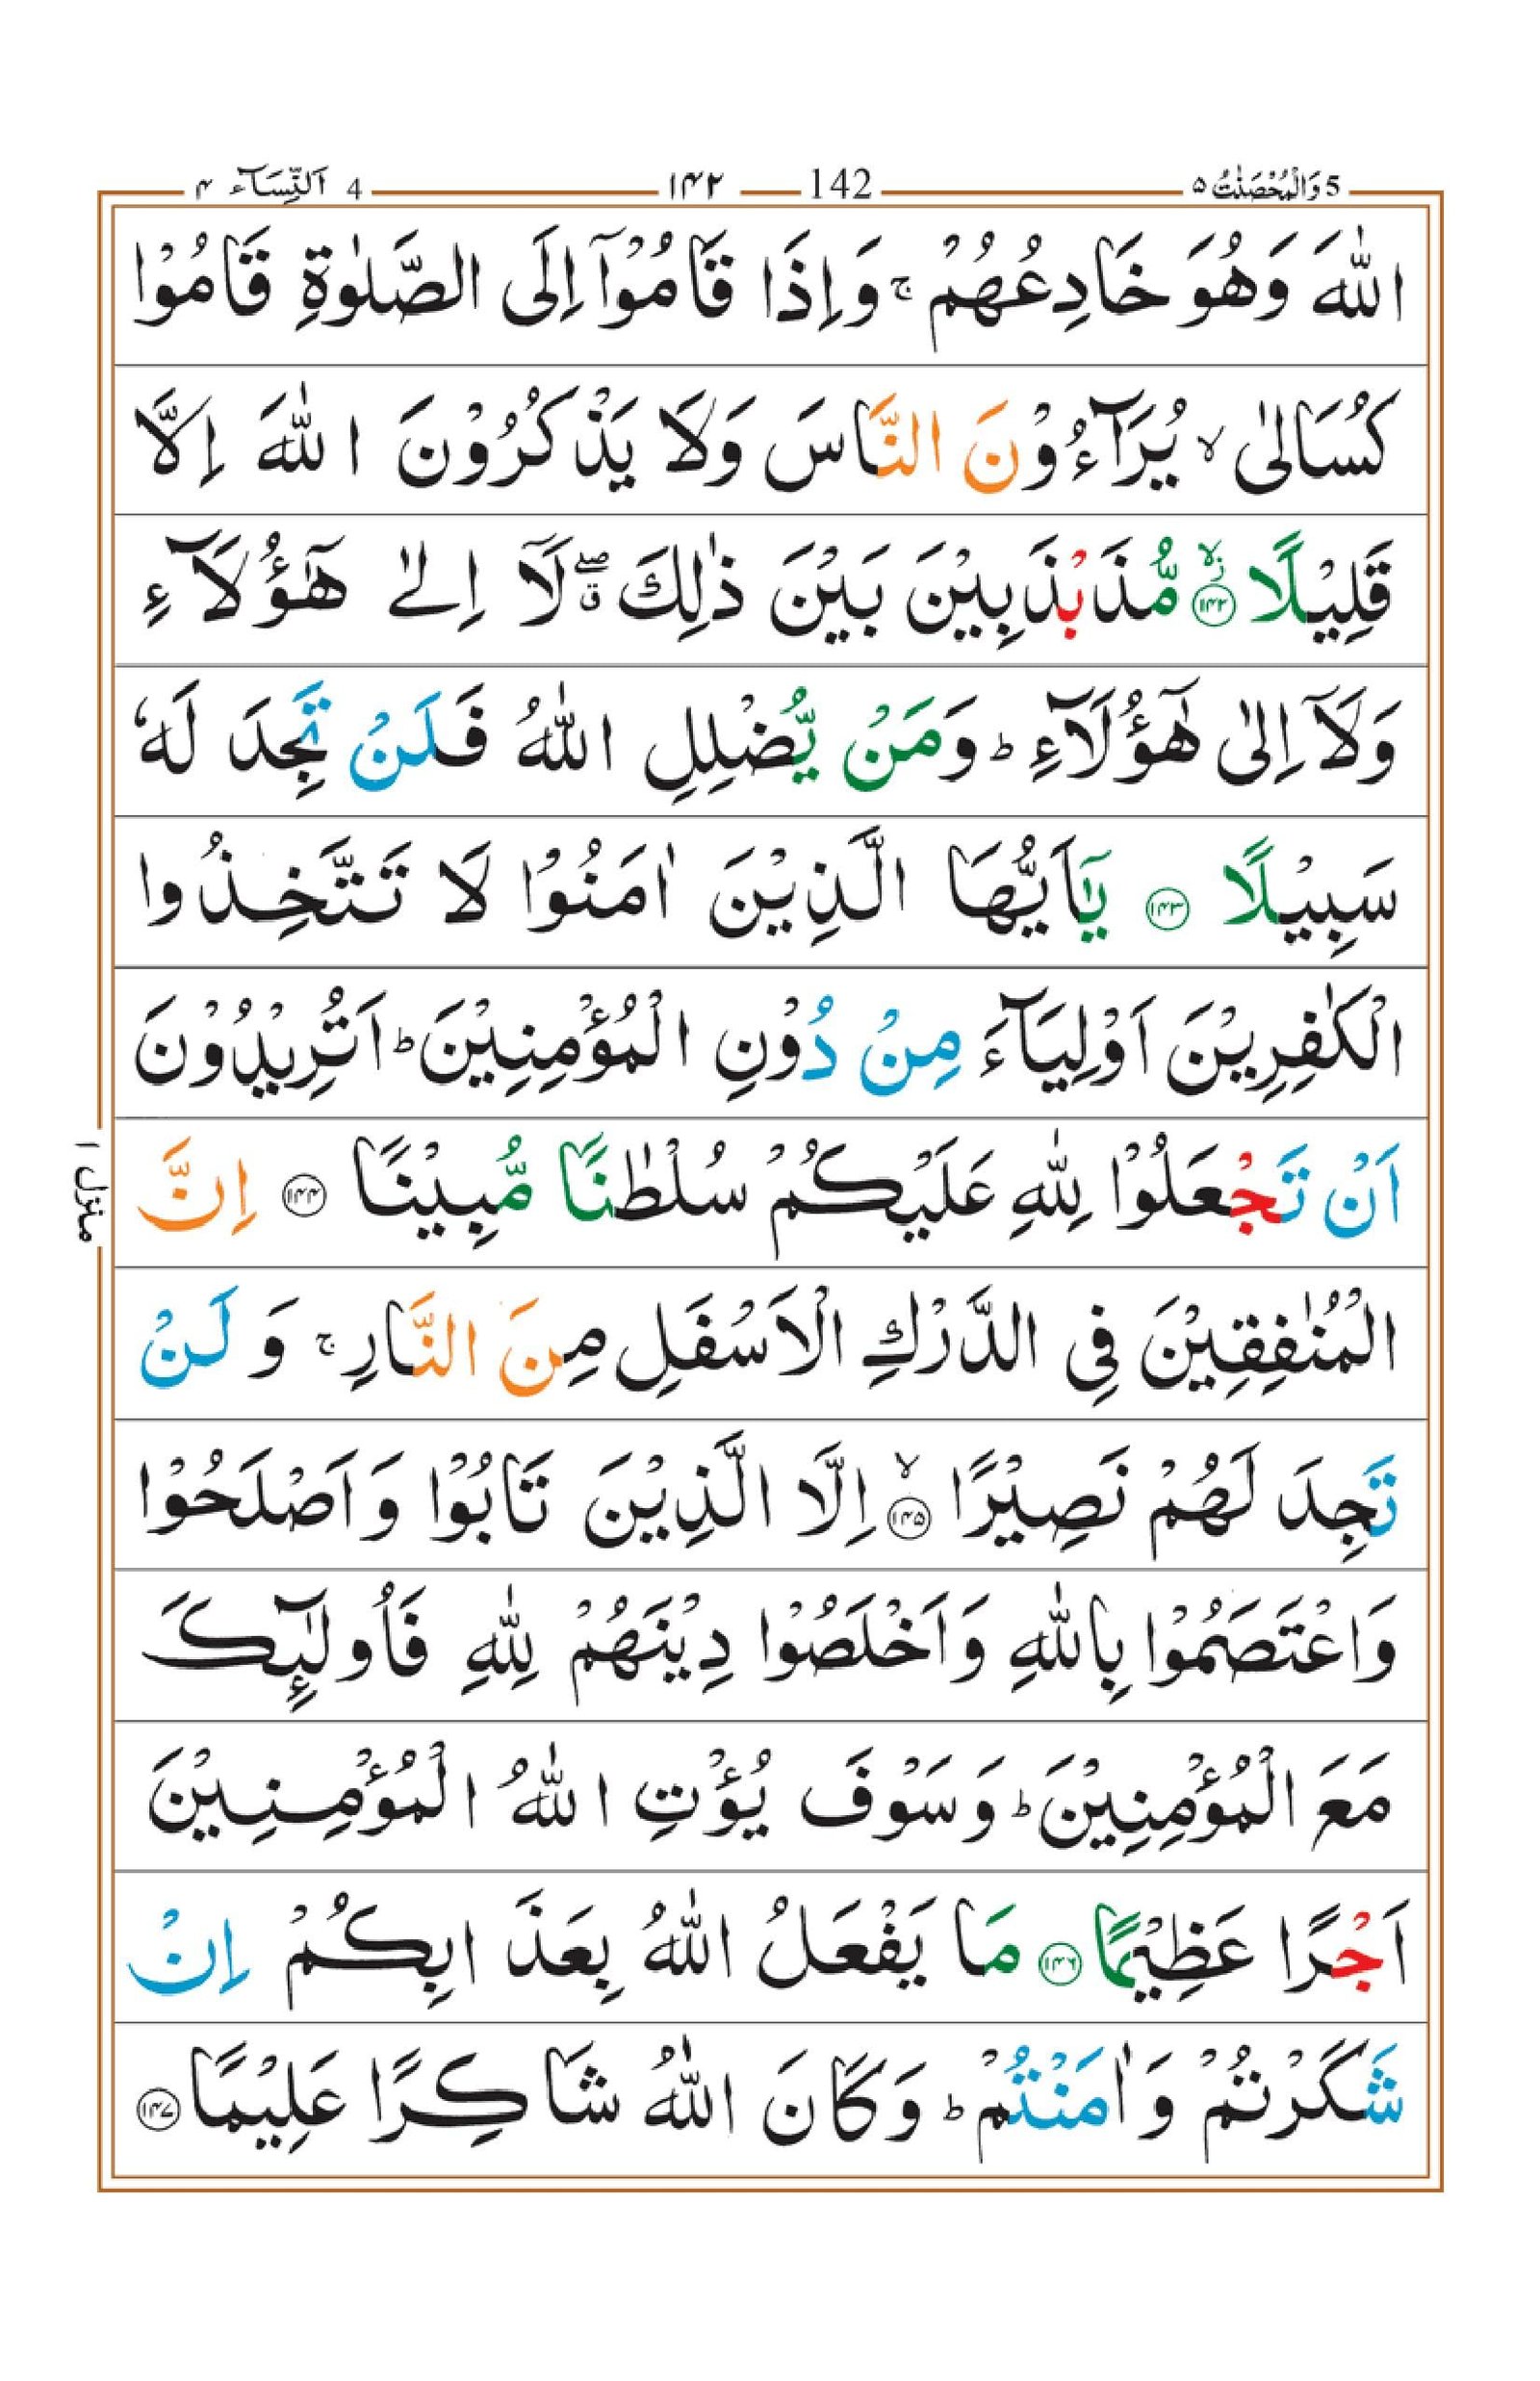 5 وَالْمُحْصَنٰتُ ۵ 142 ۱۴۲ 4 اَلنِّسَآء ۴
اللّٰهَ وَهُوَ خَادِعُهُمْ ۚ وَاِذَا قَامُوْۤا اِلَى الصَّلٰوةِ قَامُوْا
كُسَالٰى ۙ يُرَآءُوْنَ النَّاسَ وَلَا يَذْكُرُوْنَ اللّٰهَ اِلَّا
قَلِيْلًا ۙ۬ ﴿۱۴۲﴾ مُّذَبْذَبِيْنَ بَيْنَ ذٰلِكَ ۖۗ لَاۤ اِلٰى هٰٓؤُلَآءِ
وَلَاۤ اِلٰى هٰٓؤُلَآءِ ؕ وَمَنْ يُّضْلِلِ اللّٰهُ فَلَنْ تَجِدَ لَهٗ
سَبِيْلًا ﴿۱۴۳﴾ يٰۤاَيُّهَا الَّذِيْنَ اٰمَنُوْا لَا تَتَّخِذُوا
الْكٰفِرِيْنَ اَوْلِيَآءَ مِنْ دُوْنِ الْمُؤْمِنِيْنَ ؕ اَتُرِيْدُوْنَ
اَنْ تَجْعَلُوْا لِلّٰهِ عَلَيْكُمْ سُلْطٰنًا مُّبِيْنًا ﴿۱۴۴﴾ اِنَّ
منزل ۱
الْمُنٰفِقِيْنَ فِى الدَّرْكِ الْاَسْفَلِ مِنَ النَّارِ ۚ وَلَنْ
تَجِدَ لَهُمْ نَصِيْرًا ۙ ﴿۱۴۵﴾ اِلَّا الَّذِيْنَ تَابُوْا وَاَصْلَحُوْا
وَاعْتَصَمُوْا بِاللّٰهِ وَاَخْلَصُوْا دِيْنَهُمْ لِلّٰهِ فَاُولٰٓئِكَ
مَعَ الْمُؤْمِنِيْنَ ؕ وَسَوْفَ يُؤْتِ اللّٰهُ الْمُؤْمِنِيْنَ
اَجْرًا عَظِيْمًا ﴿۱۴۶﴾ مَا يَفْعَلُ اللّٰهُ بِعَذَابِكُمْ اِنْ
شَكَرْتُمْ وَاٰمَنْتُمْ ؕ وَكَانَ اللّٰهُ شَاكِرًا عَلِيْمًا ﴿۱۴۷﴾